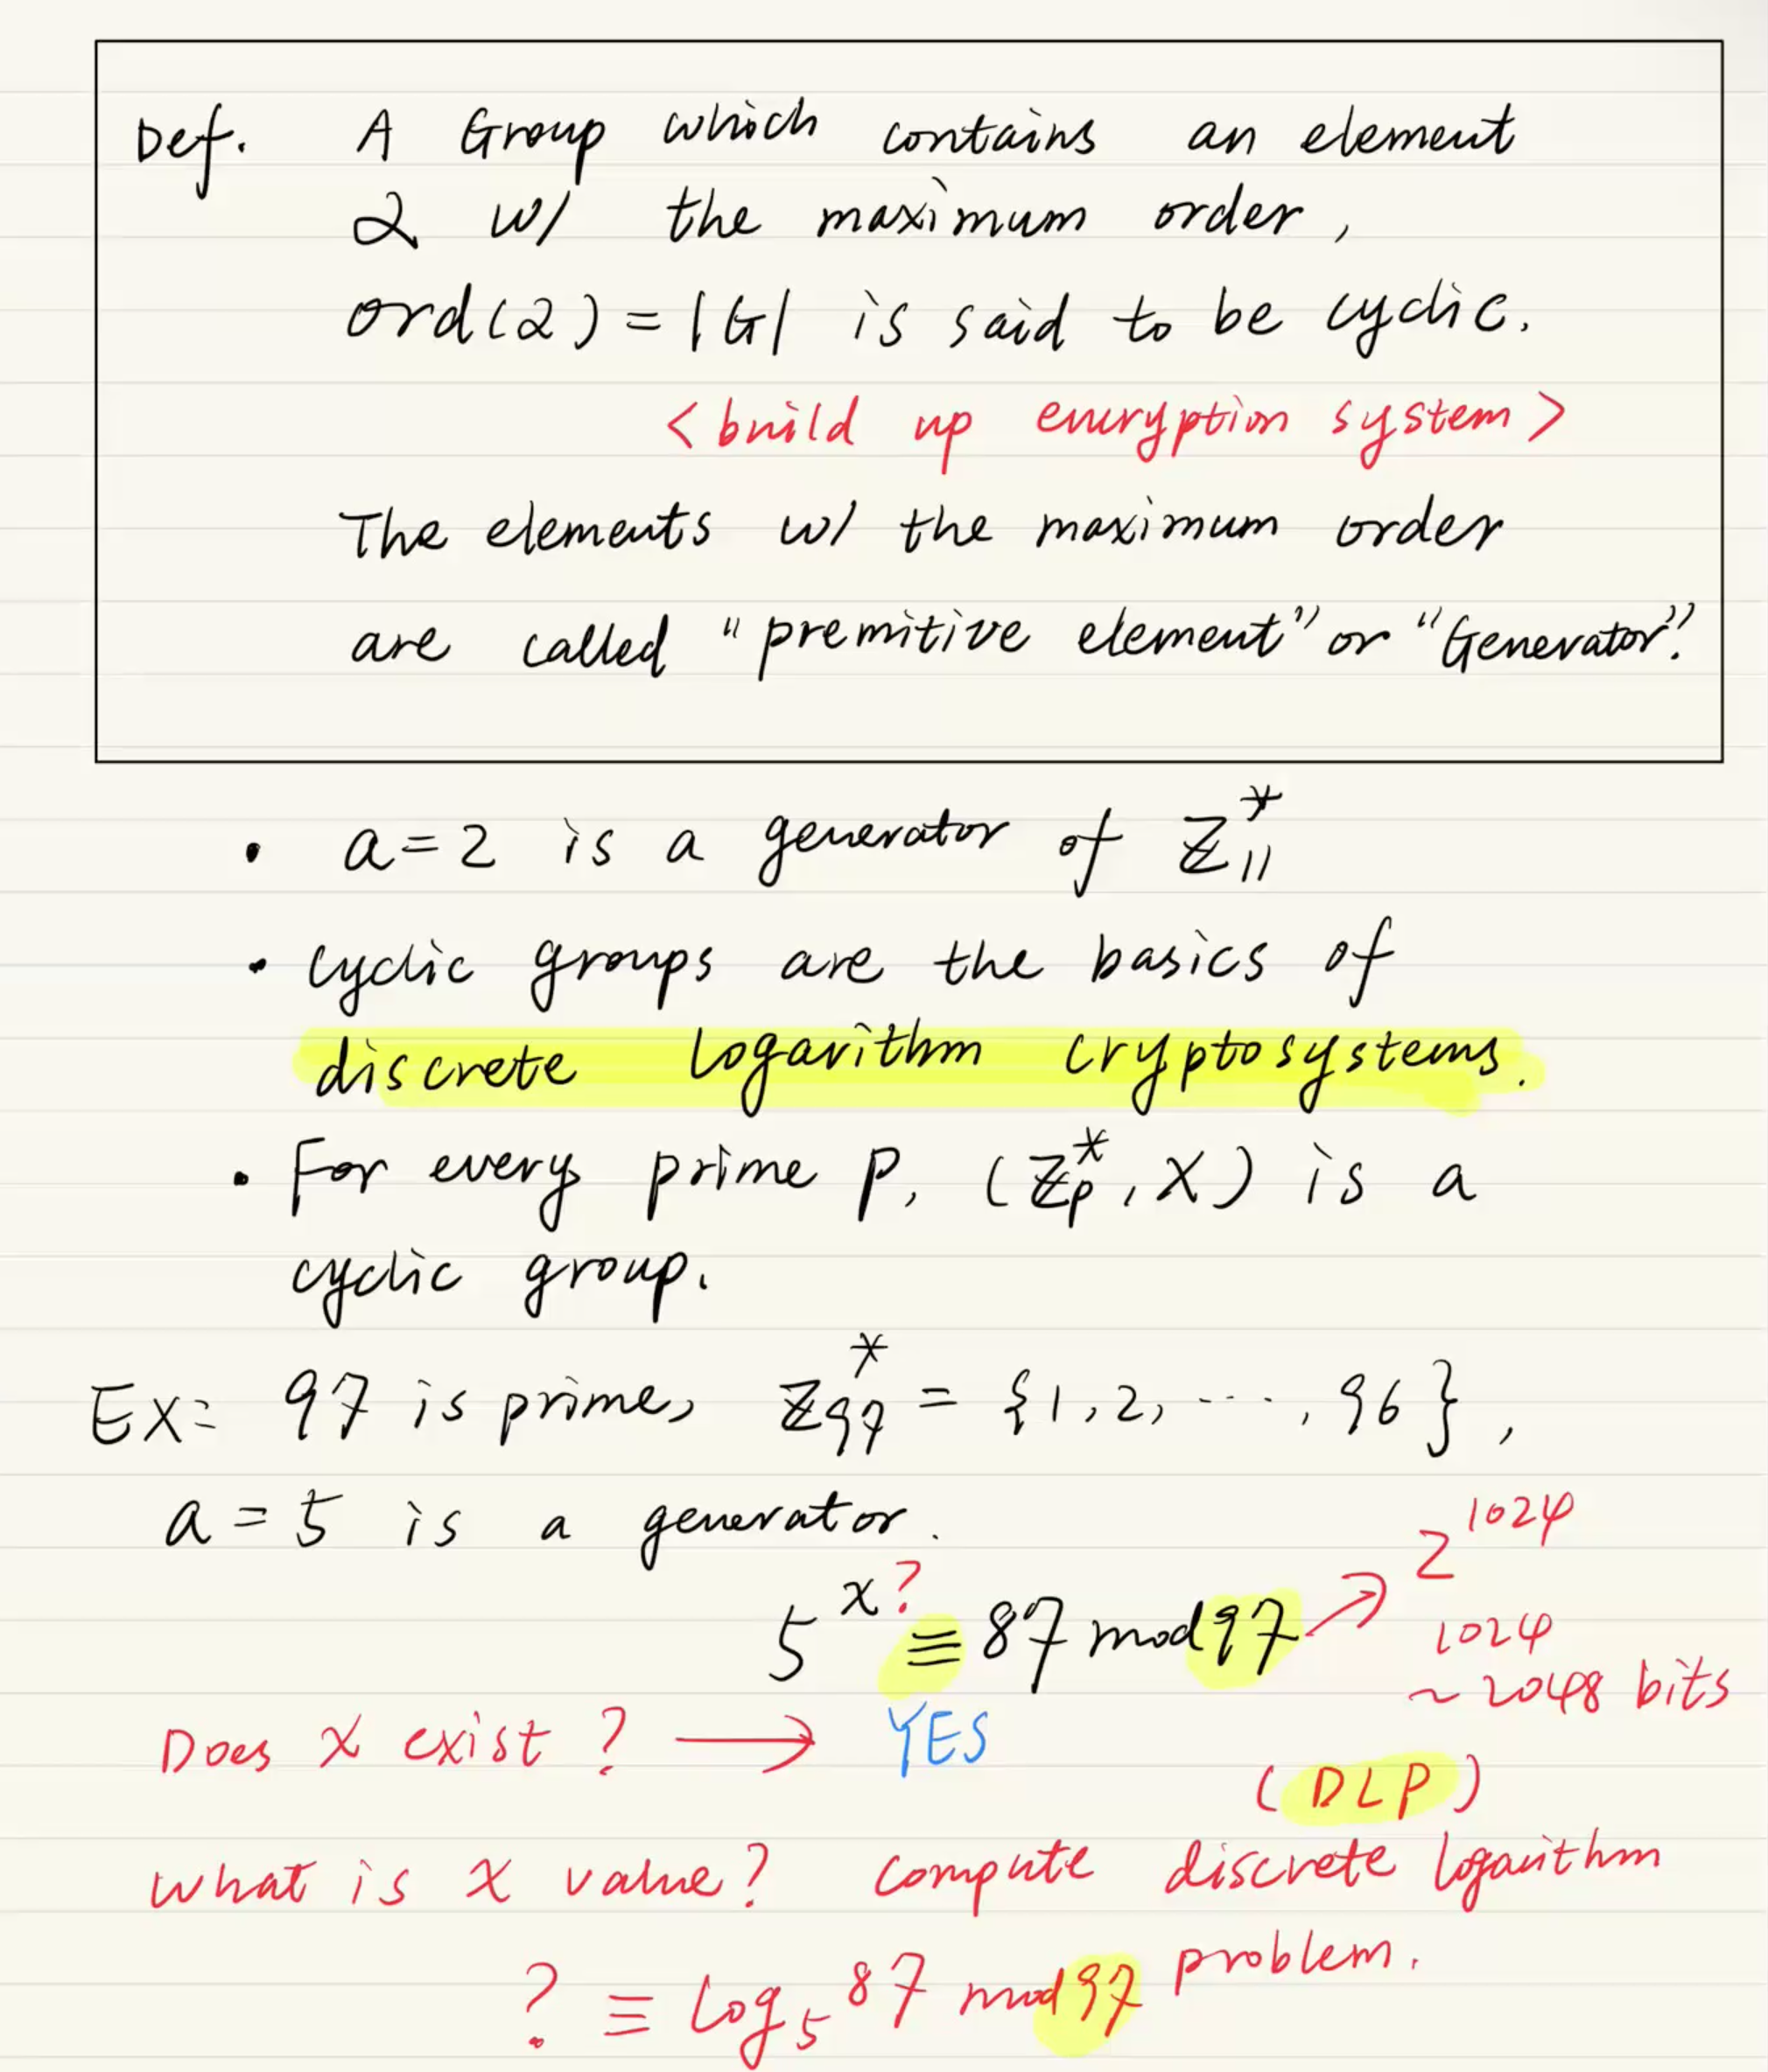 Def. A Group which contains an element
α w/ the maximum order,
ord(α) = |G| is said to be cyclic.
<build up encryption system>
The elements w/ the maximum order
are called "premitive element" or "Generator".
• a=2 is a generator of Z*₁₁
• cyclic groups are the basics of
discrete logarithm cryptosystems.
• For every prime p, (Z*ₚ, X) is a
cyclic group.
Ex: 97 is prime, Z*₉₇ = {1, 2, ···, 96},
a = 5 is a generator.
2^1024
5^x? ≡ 87 mod 97 →
1024
~2048 bits
Does x exist? → YES
(DLP)
What is x value? compute discrete logarithm
problem.
? ≡ log₅ 87 mod 97